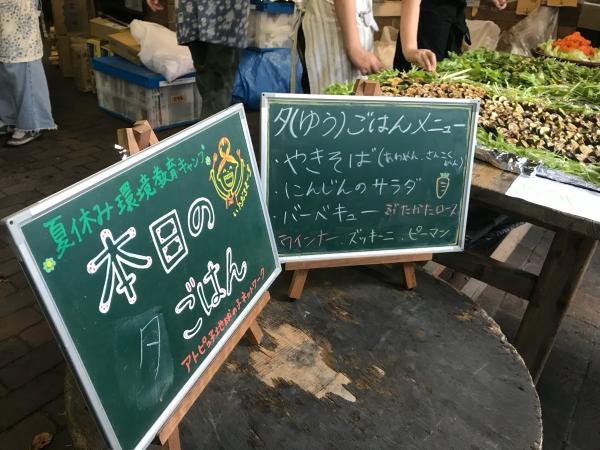 夏休み環境教育キャンプ
本日の
夕
ごはん
いただきまーす
アトピッ子地球の子ネットワーク
夕(ゆう)ごはんメニュー
・やきそば(あわめん、さんこくめん)
・にんじんのサラダ
・バーベキュー ぶたかたロース
ウインナー、ズッキーニ、ピーマン